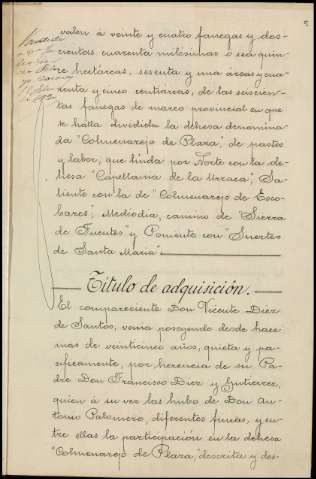 valen á veinte y cuatro fanegas y dos-
cientas cuarenta milésimas ó sea quin-
ce hectáreas, sesenta y una áreas y cua-
renta y cinco centiáreas, de las seiscien-
tas fanegas de marco provincial en que
se halla dividida la dehesa denomina-
da "Colmenarejo de Plaza", de pastos
y labor, que linda por Norte con la de-
hesa "Capellania de la Urraca"; Sa-
liente con la de "Colmenarejo de Esco-
bares"; Mediodia, camino de "Sierra
de Fuentes" y Poniente con "Suertes
de Santa Maria".
Título de adquisición.
El compareciente Don Vicente Diez
de Santos, venia poseyendo desde hace
mas de veinticinco años, quieta y pa-
cificamente, por herencia de su Pa-
dre Don Francisco Diez y Gutierrez,
quien á su vez las hubo de Don An-
tonio Palomero, diferentes fincas, y en-
tre ellas la participación en la dehesa
"Colmenarejo de Plaza," descrita y des-